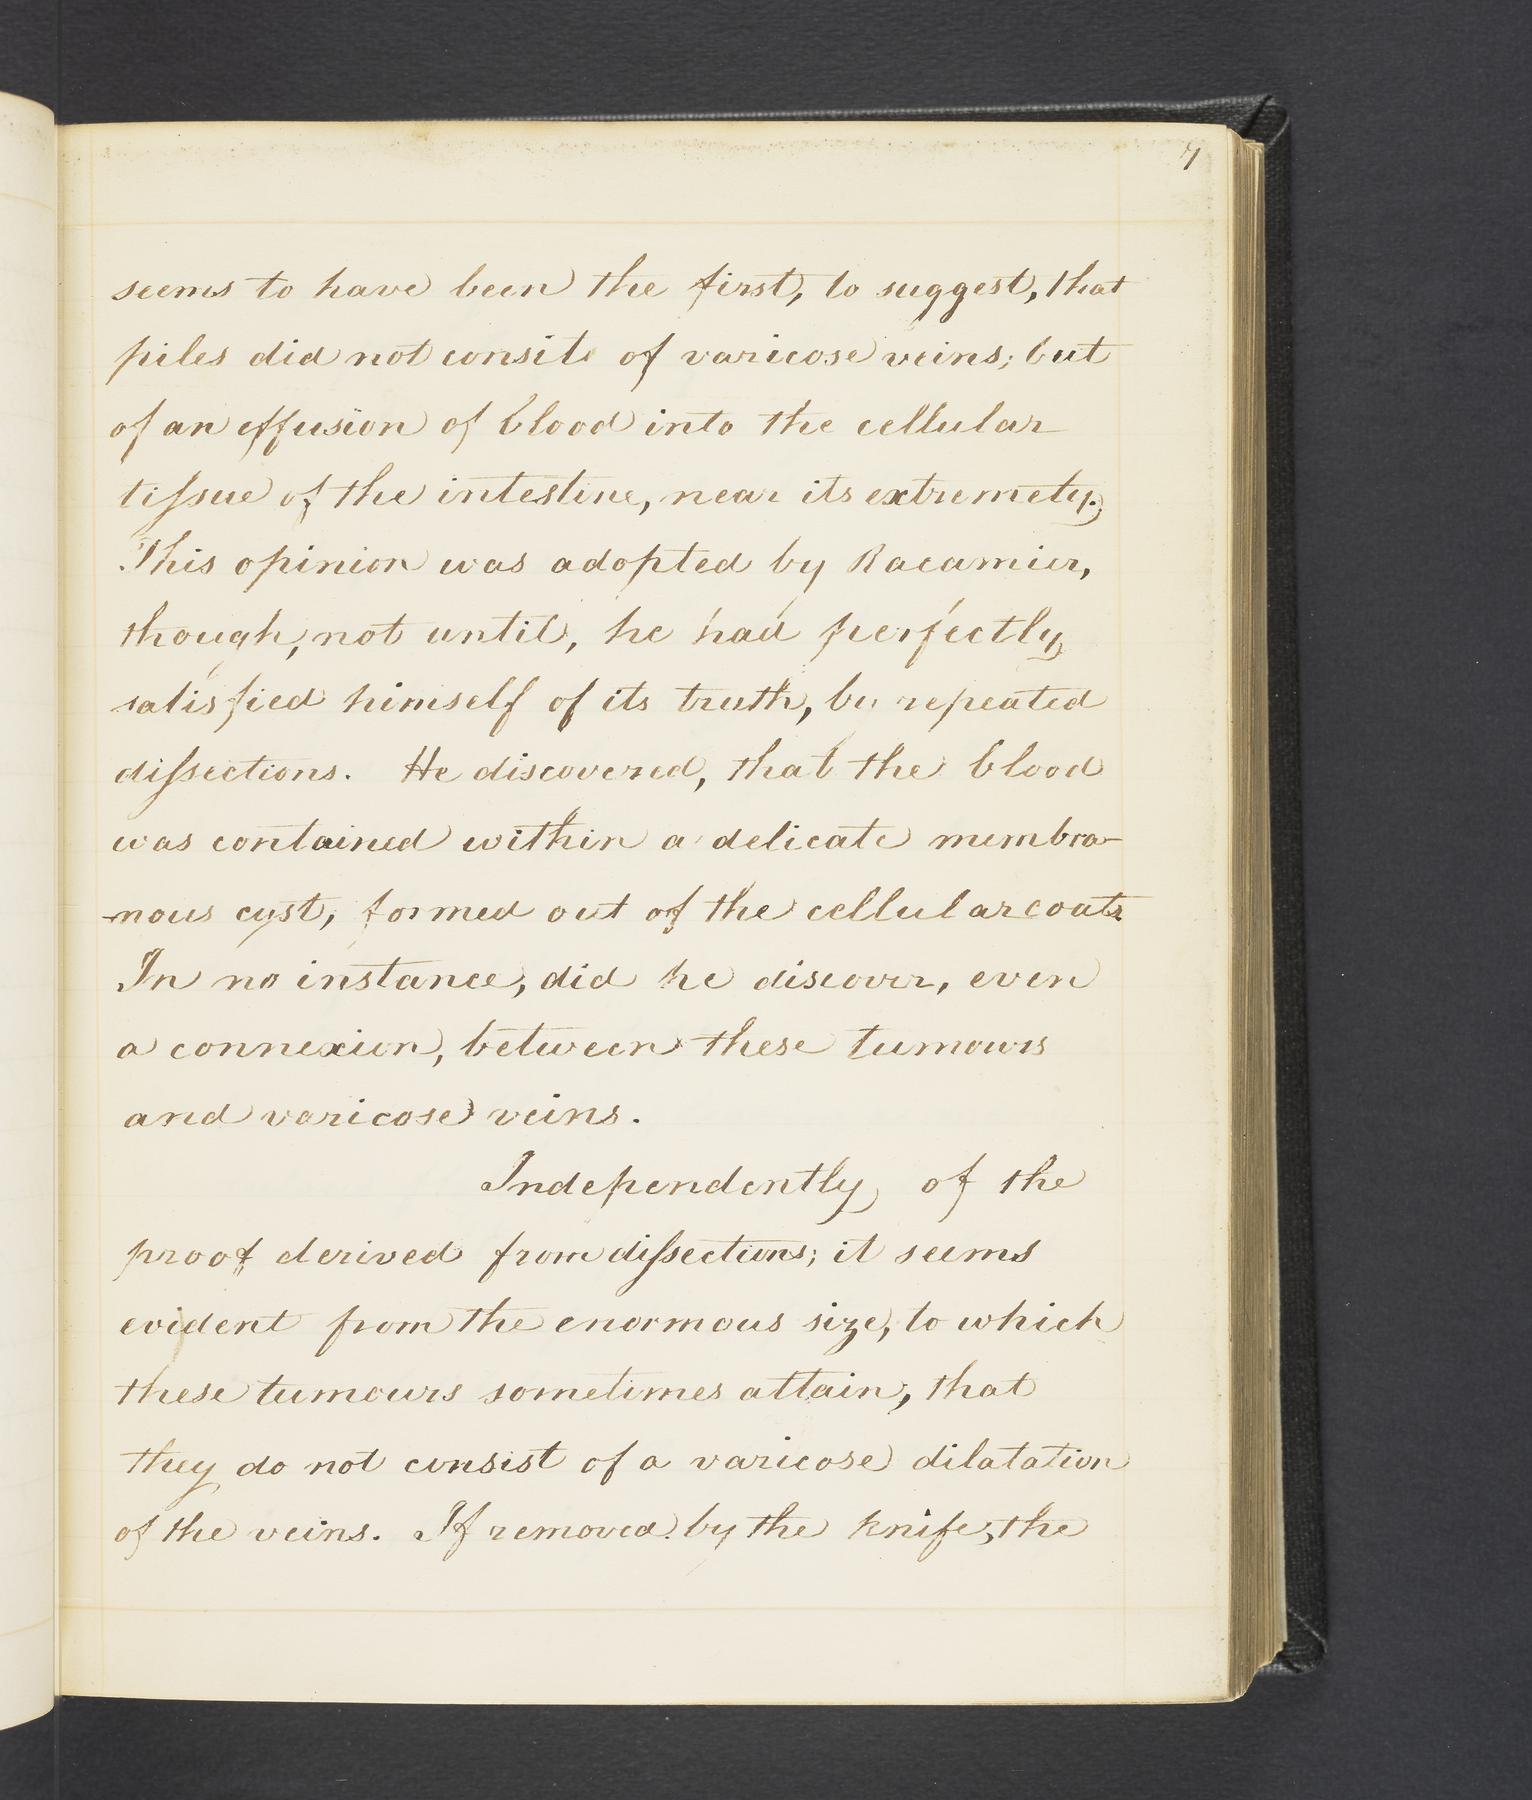 7
seems to have been the first, to suggest, that
piles did not consite of varicose veins; but
of an effusion of blood into the cellular
tiſsue of the intestine, near its extremety.
This opinion was adopted by Racamier,
though, not until, he had perfectly
satisfied himself of its truth, by repeated
diſsections. He discovered, that the blood
was contained within a delicate membra-
-nous cyst, formed out of the cellular coats.
In no instance, did he discover, even
a connexion, between these tumours
and varicose veins.
Independently of the
proof derived from diſsections; it seems
evident from the enormous size, to which
these tumours sometimes attain, that
they do not consist of a varicose dilatation
of the veins. If removed by the knife, the